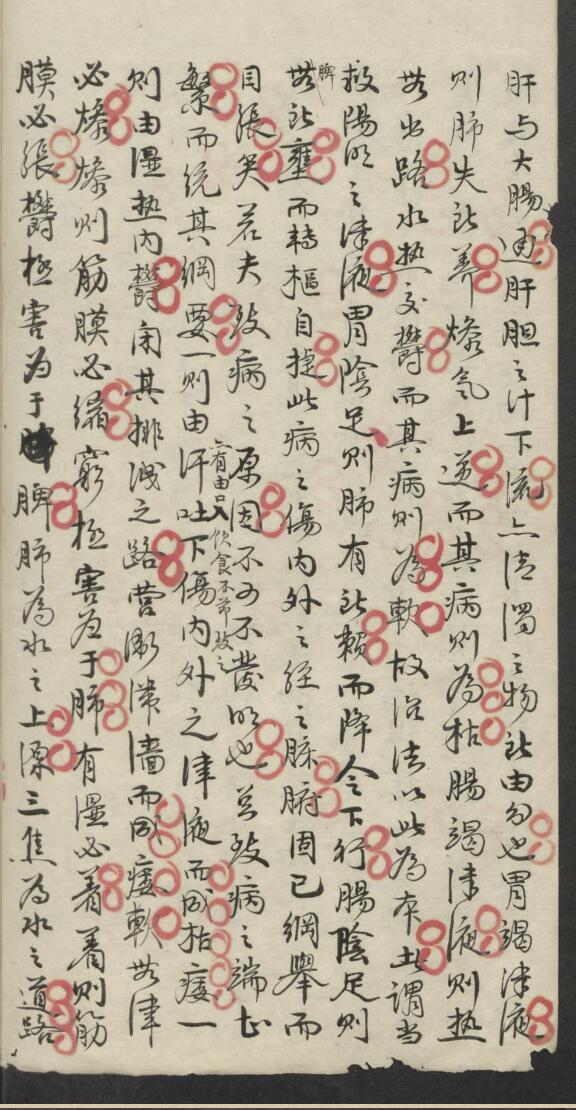 肝与大腸通肝胆之汁下流亦清濁之物所由分也胃竭津液
則肺失所养燥气上逆而其病則為枯腸竭津液則热
無出路水热交欝而其病則為軟故治法以此為本此謂当
救陽明之津液胃陰足則肺有所賴而降令下行腸陰足則
脾無所壅而轉樞自捷此病之傷内外之経之臟腑固已綱舉而
目張矣若夫致病之原因不可不發明也总致病之端甚
繁而统其綱要一則由汗吐下傷内外之津液而成枯痿一
有由飲食不節致之
則由湿热内欝闭其排洩之路营衛滞濇而成痿軟無津
必燥燥則筋膜必縮窮极害在于肺有湿必着着則筋
膜必張欝极害為于脾肺為水之上源三焦為水之道路